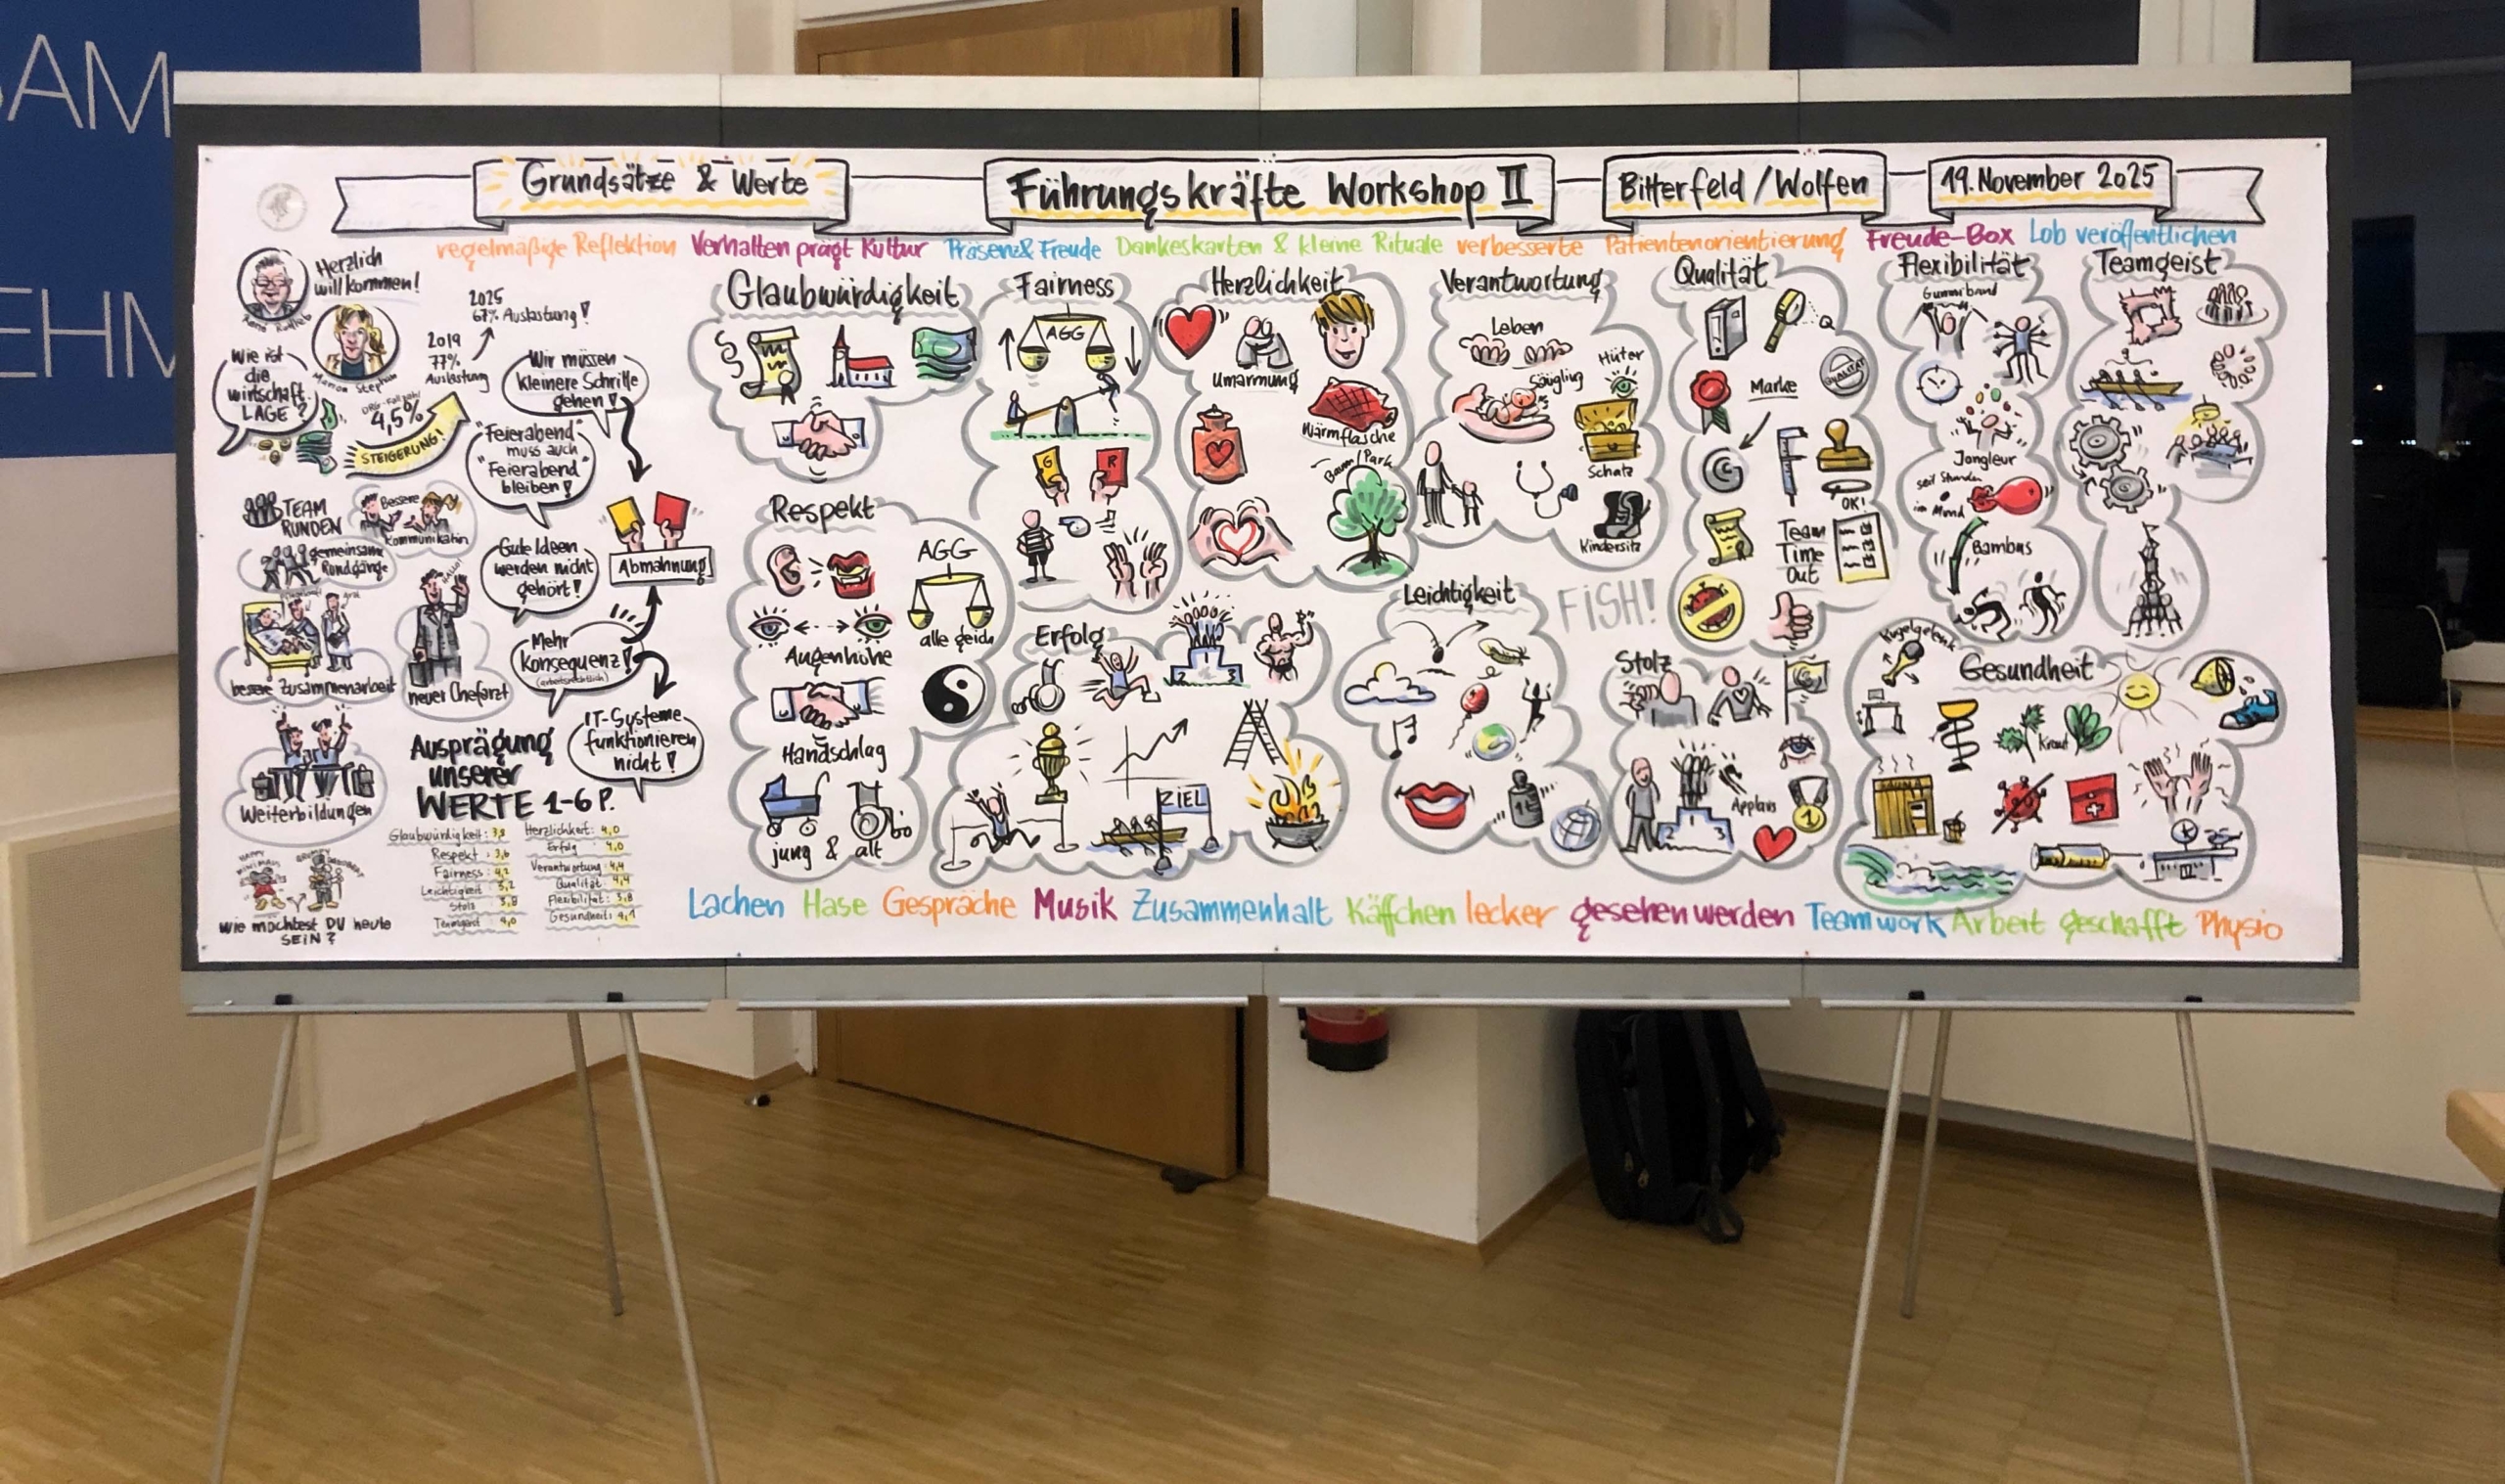 AM
EHM
Grundsätze & Werte
Führungskräfte Workshop II
Bitterfeld/Wolfen
19. November 2025
regelmäßige Reflektion Verhalten prägt Kultur Präsenz & Freude Dankeskarten & kleine Rituale verbesserte Patientenorientierung Freude-Box Lob veröffentlichen
Herzlich
willkommen!
Wie ist
die
wirtschaft.
LAGE?
2019
77%
Auslastung
2025
67% Auslastung!
4,5%
STEIGERUNG!
Wir müssen
kleinere Schritte
gehen!
"Feierabend"
muss auch
"Feierabend"
bleiben!
TEAM
RUNDEN
Bessere
Kommunikation
gemeinsame
Rundgänge
Gute Ideen
werden nicht
gehört!
Abmahnung
HALLO!
bessere Zusammenarbeit
neuer Chefarzt
Mehr
Konsequenz!
(arbeitsrechtlich)
IT-Systeme
funktionieren
nicht!
Weiterbildungen
Ausprägung
unserer
WERTE 1-6 P.
Glaubwürdigkeit: 3,8
Respekt: 3,6
Fairness: 4,2
Leichtigkeit: 3,2
Stolz 3,8
Teamgeist 4,0
Herzlichkeit: 4,0
Erfolg 4,0
Verantwortung: 4,4
Qualität 4,4
Flexibilität: 3,8
Gesundheit: 4,1
HAPPY
GRUMPY
Wie möchtest DU heute
SEIN?
Glaubwürdigkeit
Respekt
AGG
alle gleich
Augenhöhe
Handschlag
jung & alt
Fairness
AGG
G
R
Erfolg
1
2
3
ZIEL
Herzlichkeit
Umarmung
Wärmflasche
Baum/Park
Verantwortung
Leben
Hüter
Säugling
Schatz
Kindersitz
Leichtigkeit
FISH!
Qualität
QUALITÄT
Marke
OK!
Team
Time
Out
Stolz
Applaus
1
2
3
1
Flexibilität
Gummiband
Jongleur
seit Stunden
im Mund
Bambus
Teamgeist
Kugelgelenk
Gesundheit
Kraut
Lachen Hase Gespräche Musik Zusammenhalt Käffchen lecker gesehen werden Teamwork Arbeit geschafft Physio